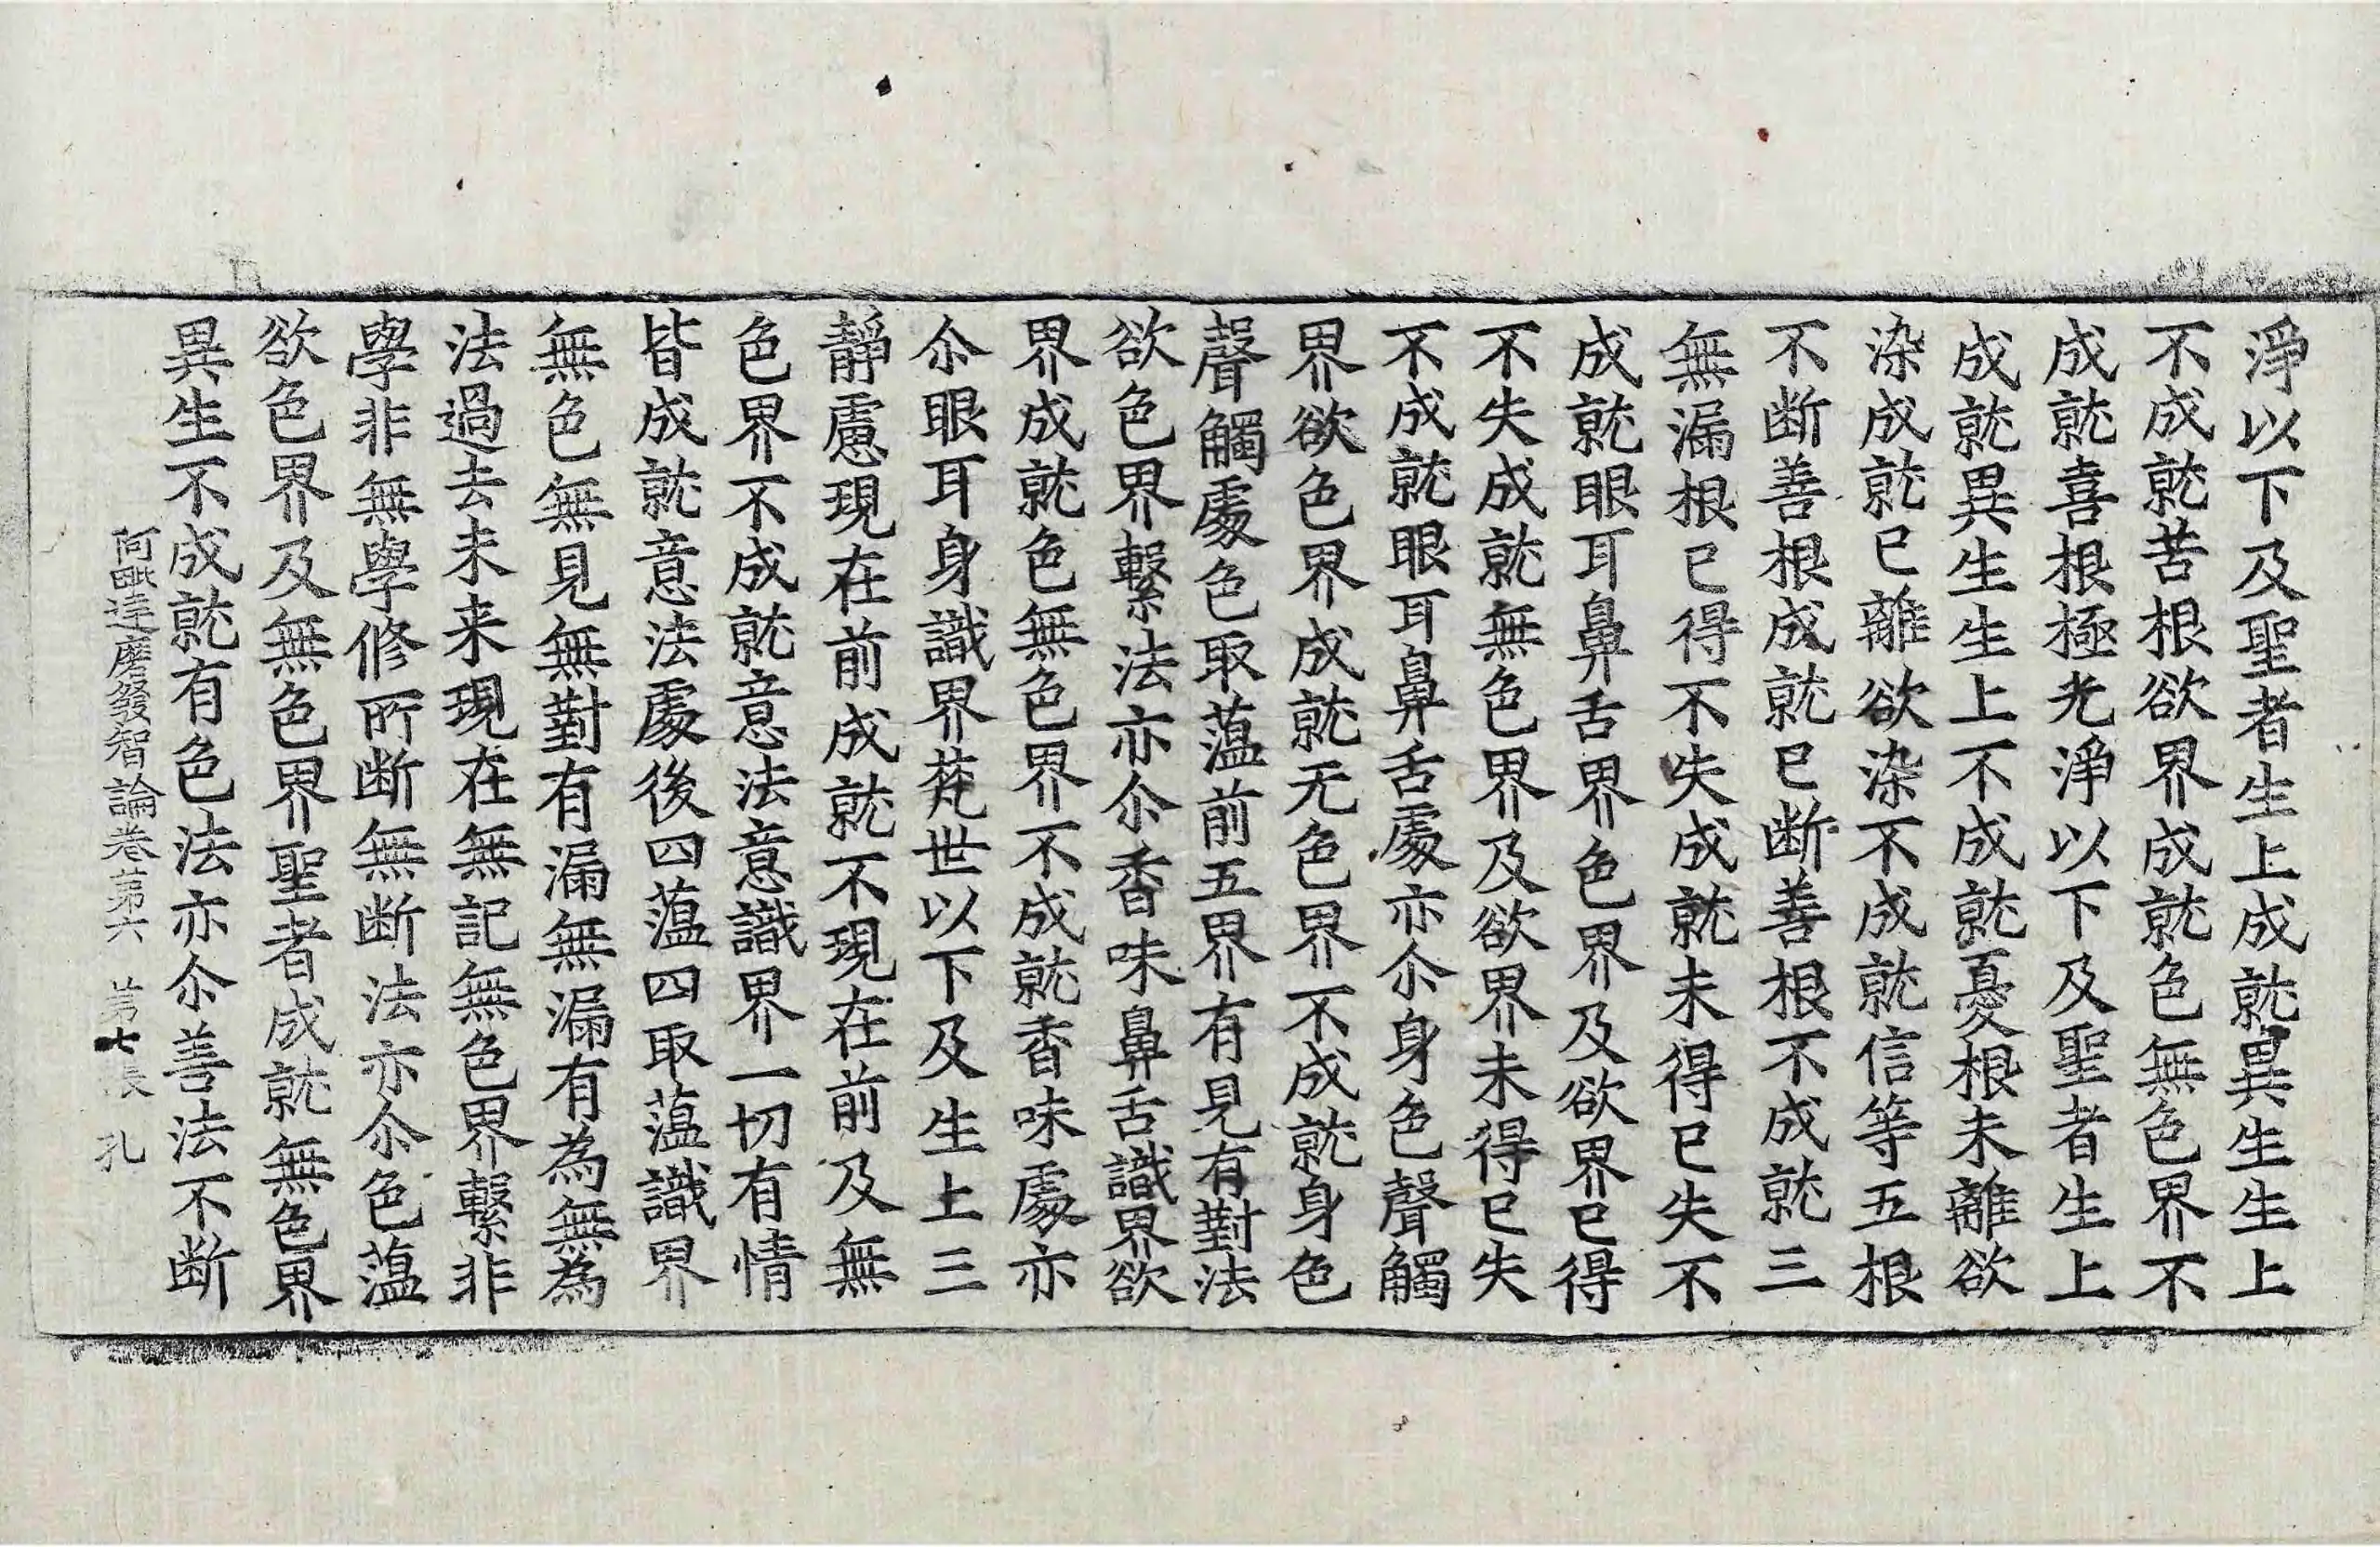 淨以下及聖者生上成就異生生上
不成就苦根欲界成就色無色界不
成就喜根極光淨以下及聖者生上
成就異生生上不成就憂根未離欲
染成就已離欲染不成就信等五根
不断善根成就已断善根不成就三
無漏根已得不失成就未得已失不
成就眼耳鼻舌界色界及欲界已得
不失成就無色界及欲界未得已失
不成就眼耳鼻舌處亦尒身色聲觸
界欲色界成就无色界不成就身色
聲觸處色取蕰前五界有見有對法
欲色界繫法亦尒香味鼻舌識界欲
界成就色無色界不成就香味處亦
尒眼耳身識界梵世以下及生上三
靜慮現在前成就不現在前及無
色界不成就意法意識界一切有情
皆成就意法處後四蕰四取蕰識界
無色無見無對有漏無漏有為無為
法過去未来現在無記無色界繫非
學非無學修所断無断法亦尒色蕰
欲色界及無色界聖者成就無色界
異生不成就有色法亦尒善法不断
阿毗達磨發智論卷第六 第七張 孔